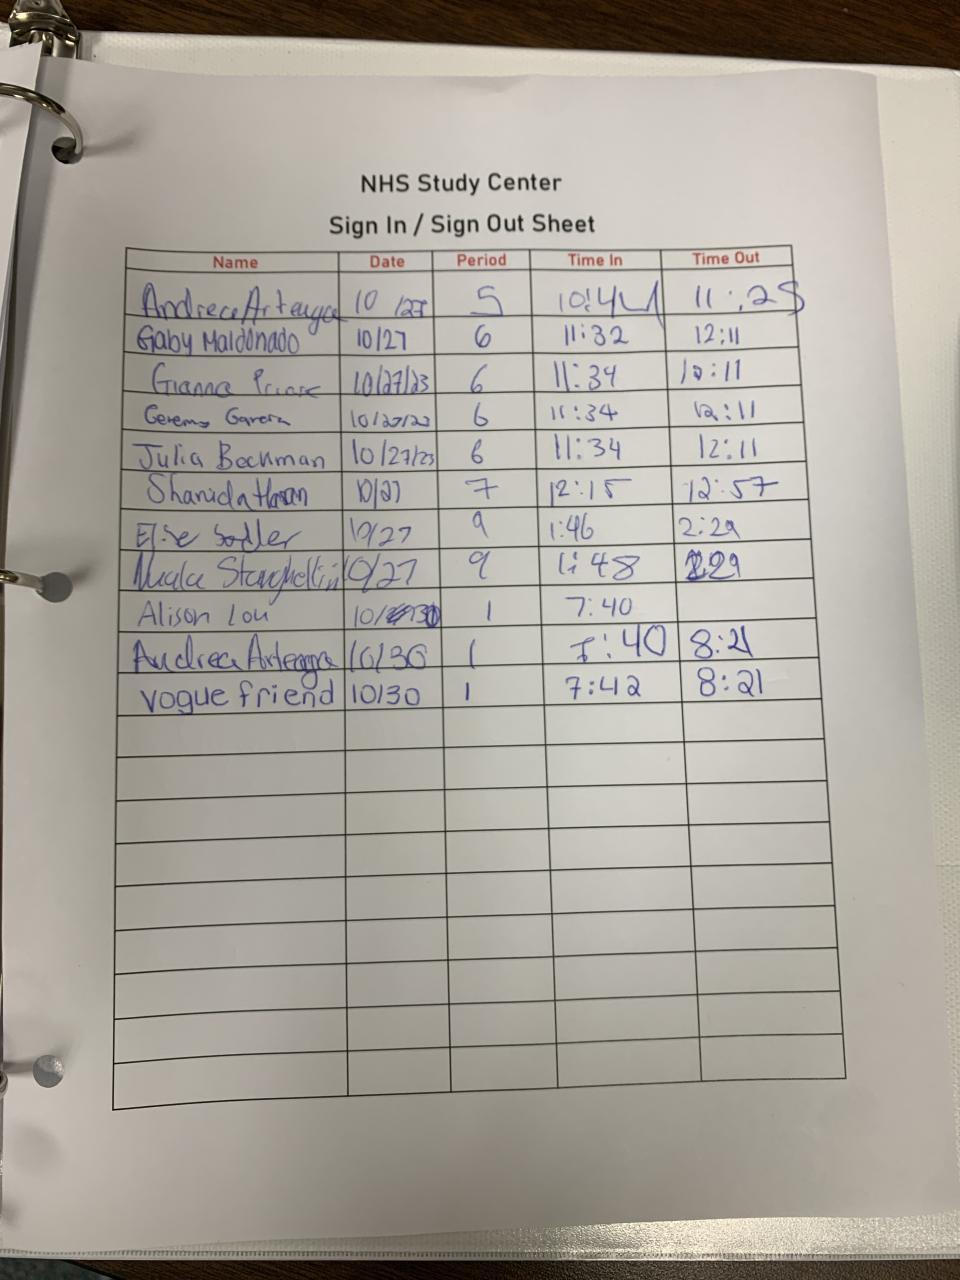 NHS Study Center
Sign In / Sign Out Sheet
Name Date Period Time In Time Out
Andrea Arteaga 10/27 5 10:44 11:25
Gaby Maldonado 10/27 6 11:32 12:11
Gianna 10/27/23 6 11:34 12:11
10/27/23 6 11:34 12:11
Julia Beckman 10/27/23 6 11:34 12:11
Shanida Hasan 10/27 7 12:15 12:57
Elise Sadler 10/27 9 1:46 2:29
10/27 9 1:48 2:29
Alison Lou 10/30 1 7:40
Andrea Arteaga 10/30 1 7:40 8:21
vogue friend 10/30 1 7:42 8:21